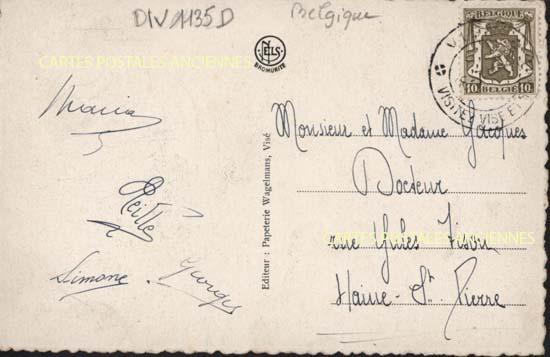 DIV11135D
Belgique
CARTES POSTALES ANCIENNES
NELS
BROMURITE
BELGIQUE
10 BELGIË 10
VISITEZ VISE ET
Maria
Simone
Georges
Editeur : Papeterie Wagelmans, Visé
Monsieur et Madame Jacques
Docteur
rue Jules
CARTES POSTALES ANCIENNES
Haine-St. Pierre